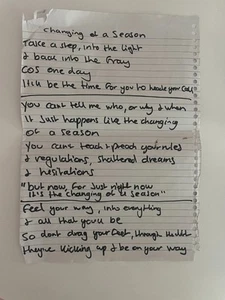 changing of a Season
Take a step, into the light
& back into the fray
COS one day
It'll be the time for you to
you cant tell me who, or why & when
It Just happens like the changing
of a season
you cant teach & preach your rules
& regulations, shattered dreams
& hesitations
"but now, for Just right now
it's the changing of a season"
feel your way, into everything
& all that you'll be
So dont drag your feet, through the
they're kicking up & be on your way